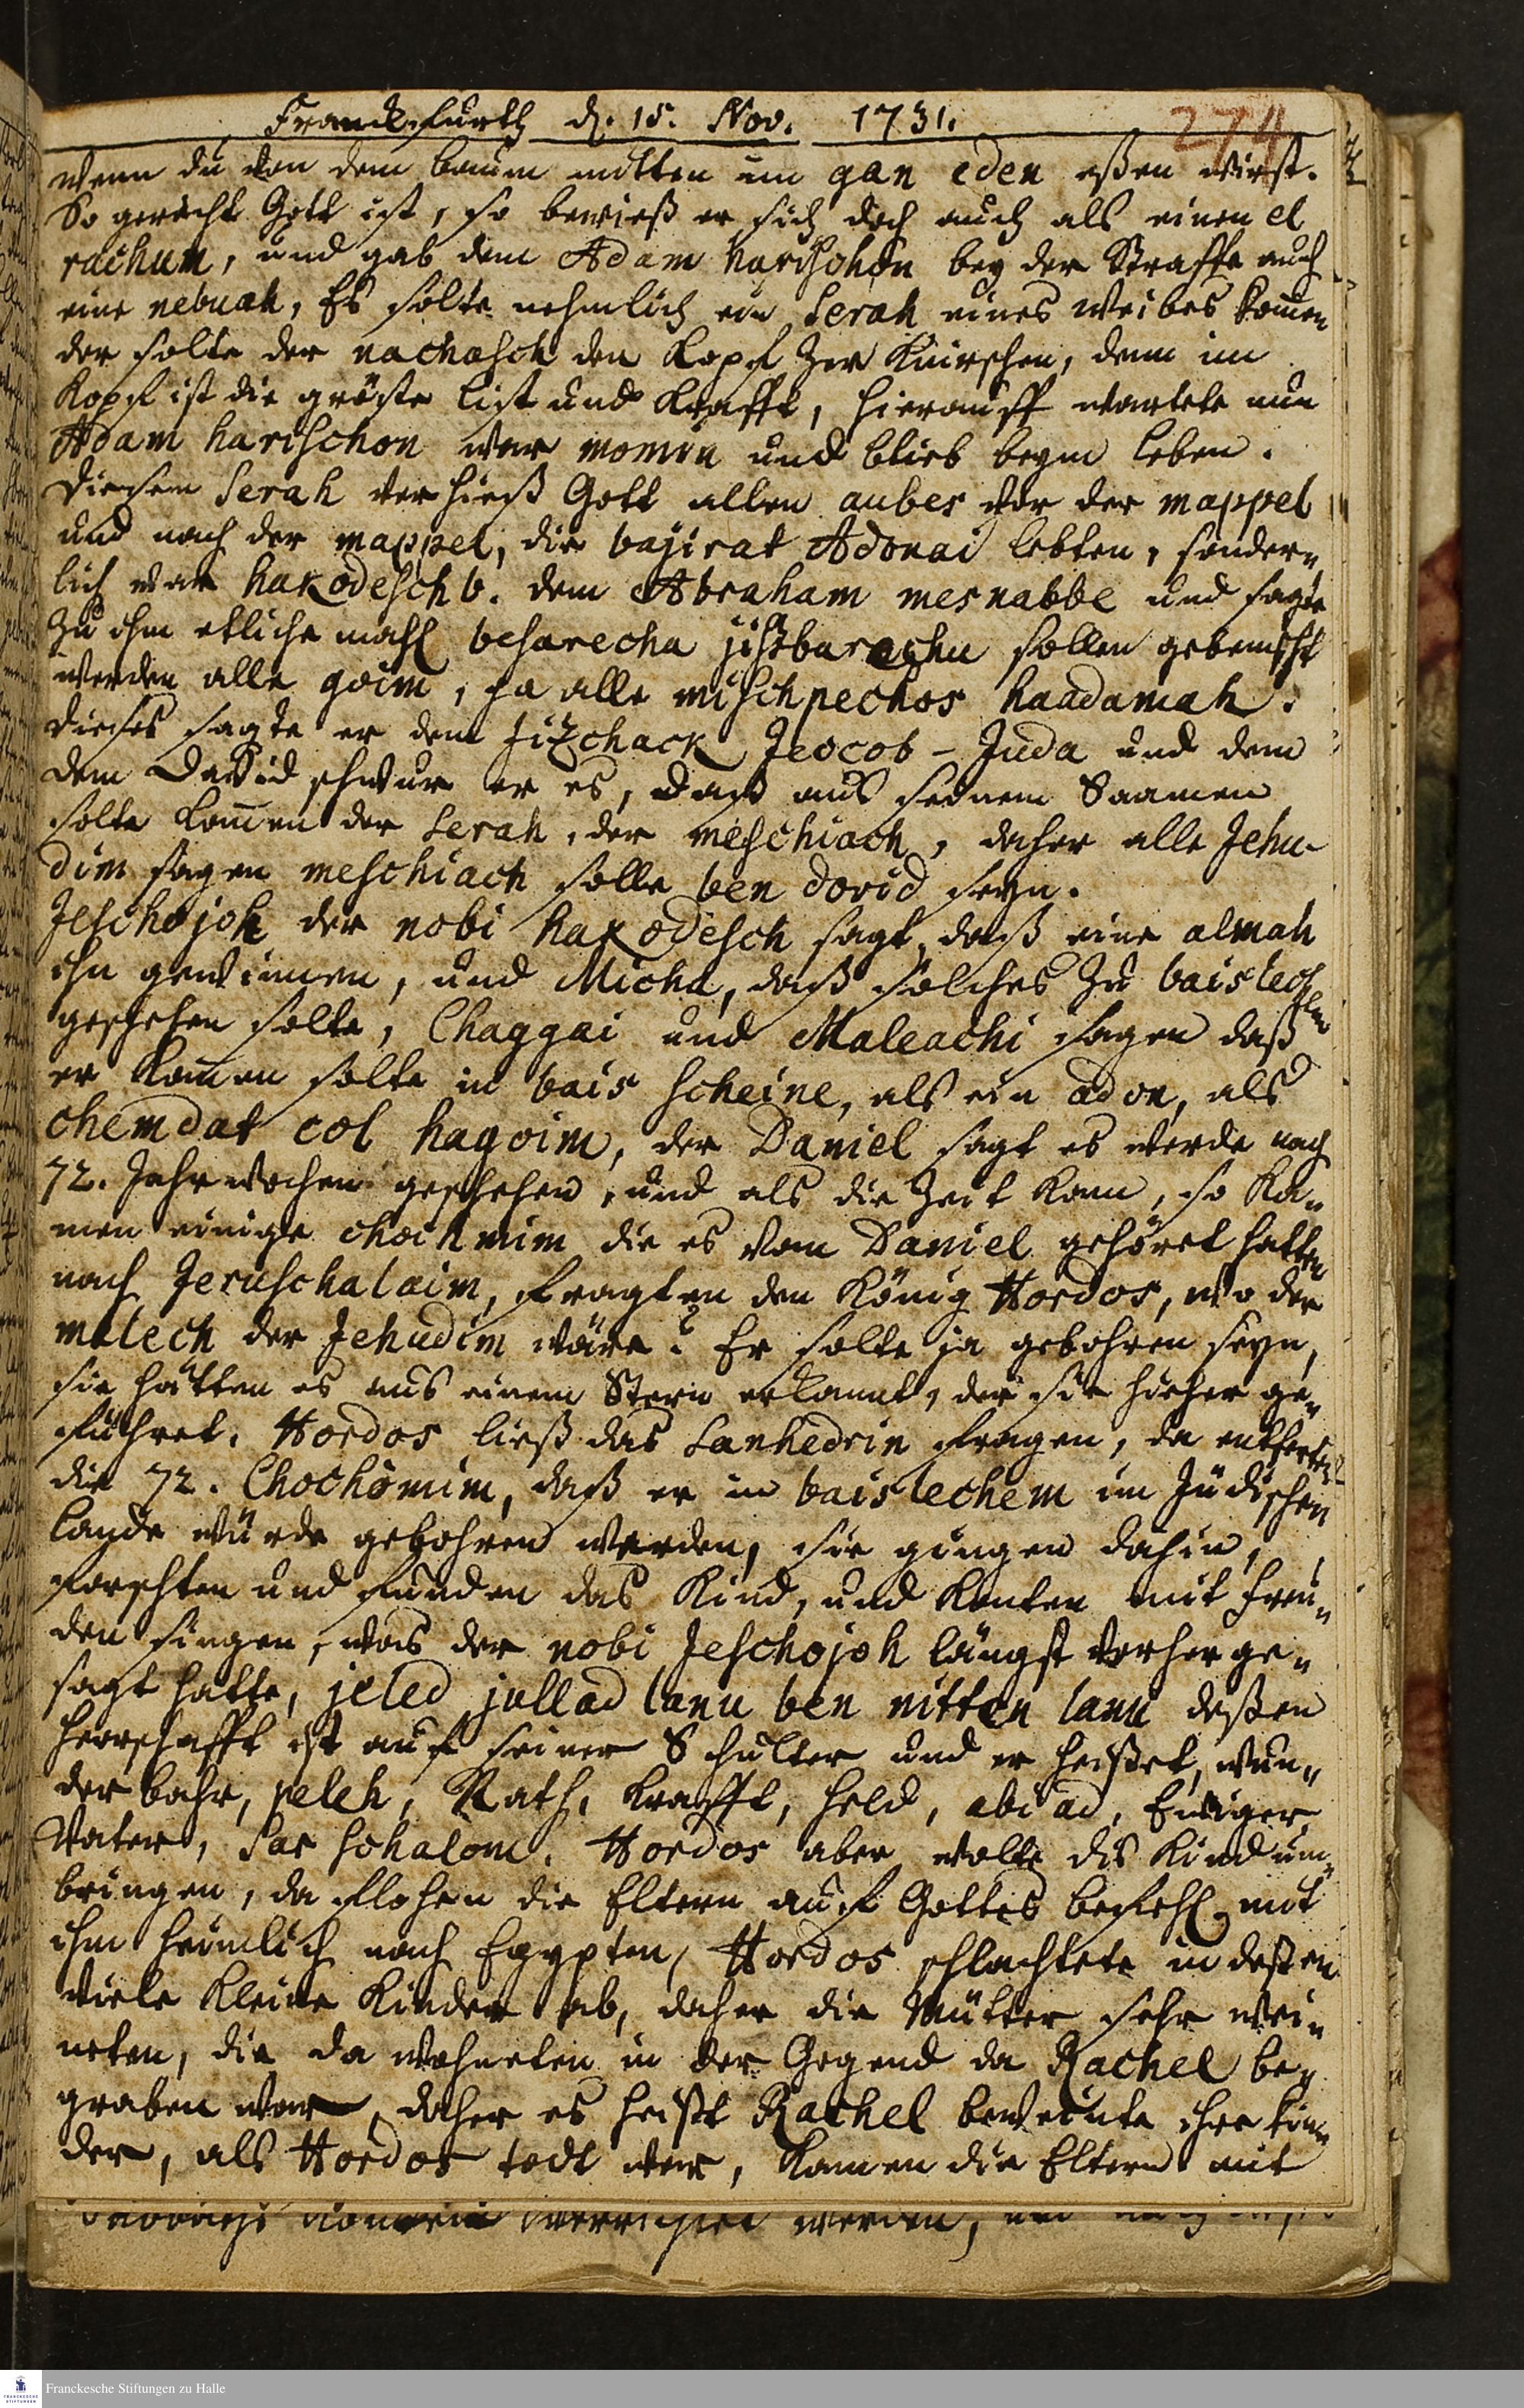 Franckfurth d. 15. Nov. 1731.
274
wenn du von dem baum mitten im gan eden eßen wirst.
So gerecht Gott ist, so bewieß er sich doch auch als einen el
rachum, und gab dem Adam harischon bey der Straffe auch
eine nebuah, Es solte nehmlich ein Serah eines Weibes kom̄en
der solte der nachasch den Kopf zer Knirschen, denn im
Kopf ist die gröste List und Krafft, hierauff wartete nun
Adam harischon war momin und blieb beym leben.
Diesen Serah verhieß Gott allen aubes vor der mappel
und nach der mappel, die bajirat Adonai lebten, sonder„
lich war hakodesch b. dem Abraham mesnabbe und sagte
zu ihm etliche mahl besarecha jisbarechu sollen gebenscht
werden alle goim, ja alle mischpechos haadamah.
Dieses sagte er dem Jizchack Jeocob - Juda und dem
dem David schwur er es, daß aus seinem Saamen
solte kom̄en der Serah, der meschiach, daher alle Jehu-
dim sagen meschiach solle ben dovid seyn.
Jeschojoh der nobi hakodesch sagt, daß eine almah
ihn gewinnen, und Micha, daß solches zu baislechem
geschehen solte, Chaggai und Maleachi sagen daß
er kom̄en solte in bais scheine, als ein adon, als
chemdat col hagoim, der Daniel sagt es werde nach
72. Jahrwochen geschehen, und als die Zeit kam, so ka„
men einige chochmim die es vom Daniel gehöret hatten
nach Jeruschalaim, fragten den König Hordos, wo der
melech der Jehudim wäre? Er solte ja gebohren seyn,
sie hätten es aus einem Stern erkannt, der sie hieher ge„
führet. Hordos ließ das Sanhedrin fragen, da
die 72. Chochomim, daß er in baislechem im Jüdischen
Lande würde gebohren werden, sie gingen dahin,
forschten und funden das Kind, und konten mit Freu„
den singen, was der nobi Jeschojoh längst vorherge„
sagt hatte, jeled jullad lanu ben nitten lanu deßen
Herrschafft ist auf seiner Schulter und er heißet, wun„
derbahr, peleh, Rath, Krafft, Held, abi ad, Ewiger
Vater, Sar schalom. Hordos aber wolte dis Kind um„
bringen, da flohen die Eltern auf Gottes Befehl mit
ihm heimlich nach Egypten, Hordos schlachtete indeßen
viele kleine Kinder ab, daher die Mütter sehr wei„
neten, die da wohneten in der Gegend da Rachel be„
graben war, daher es heißt Rachel beweinte ihre Kin„
der, als Hordos todt war, kamen die Eltern mit
werden,
Franckesche Stiftungen zu Halle